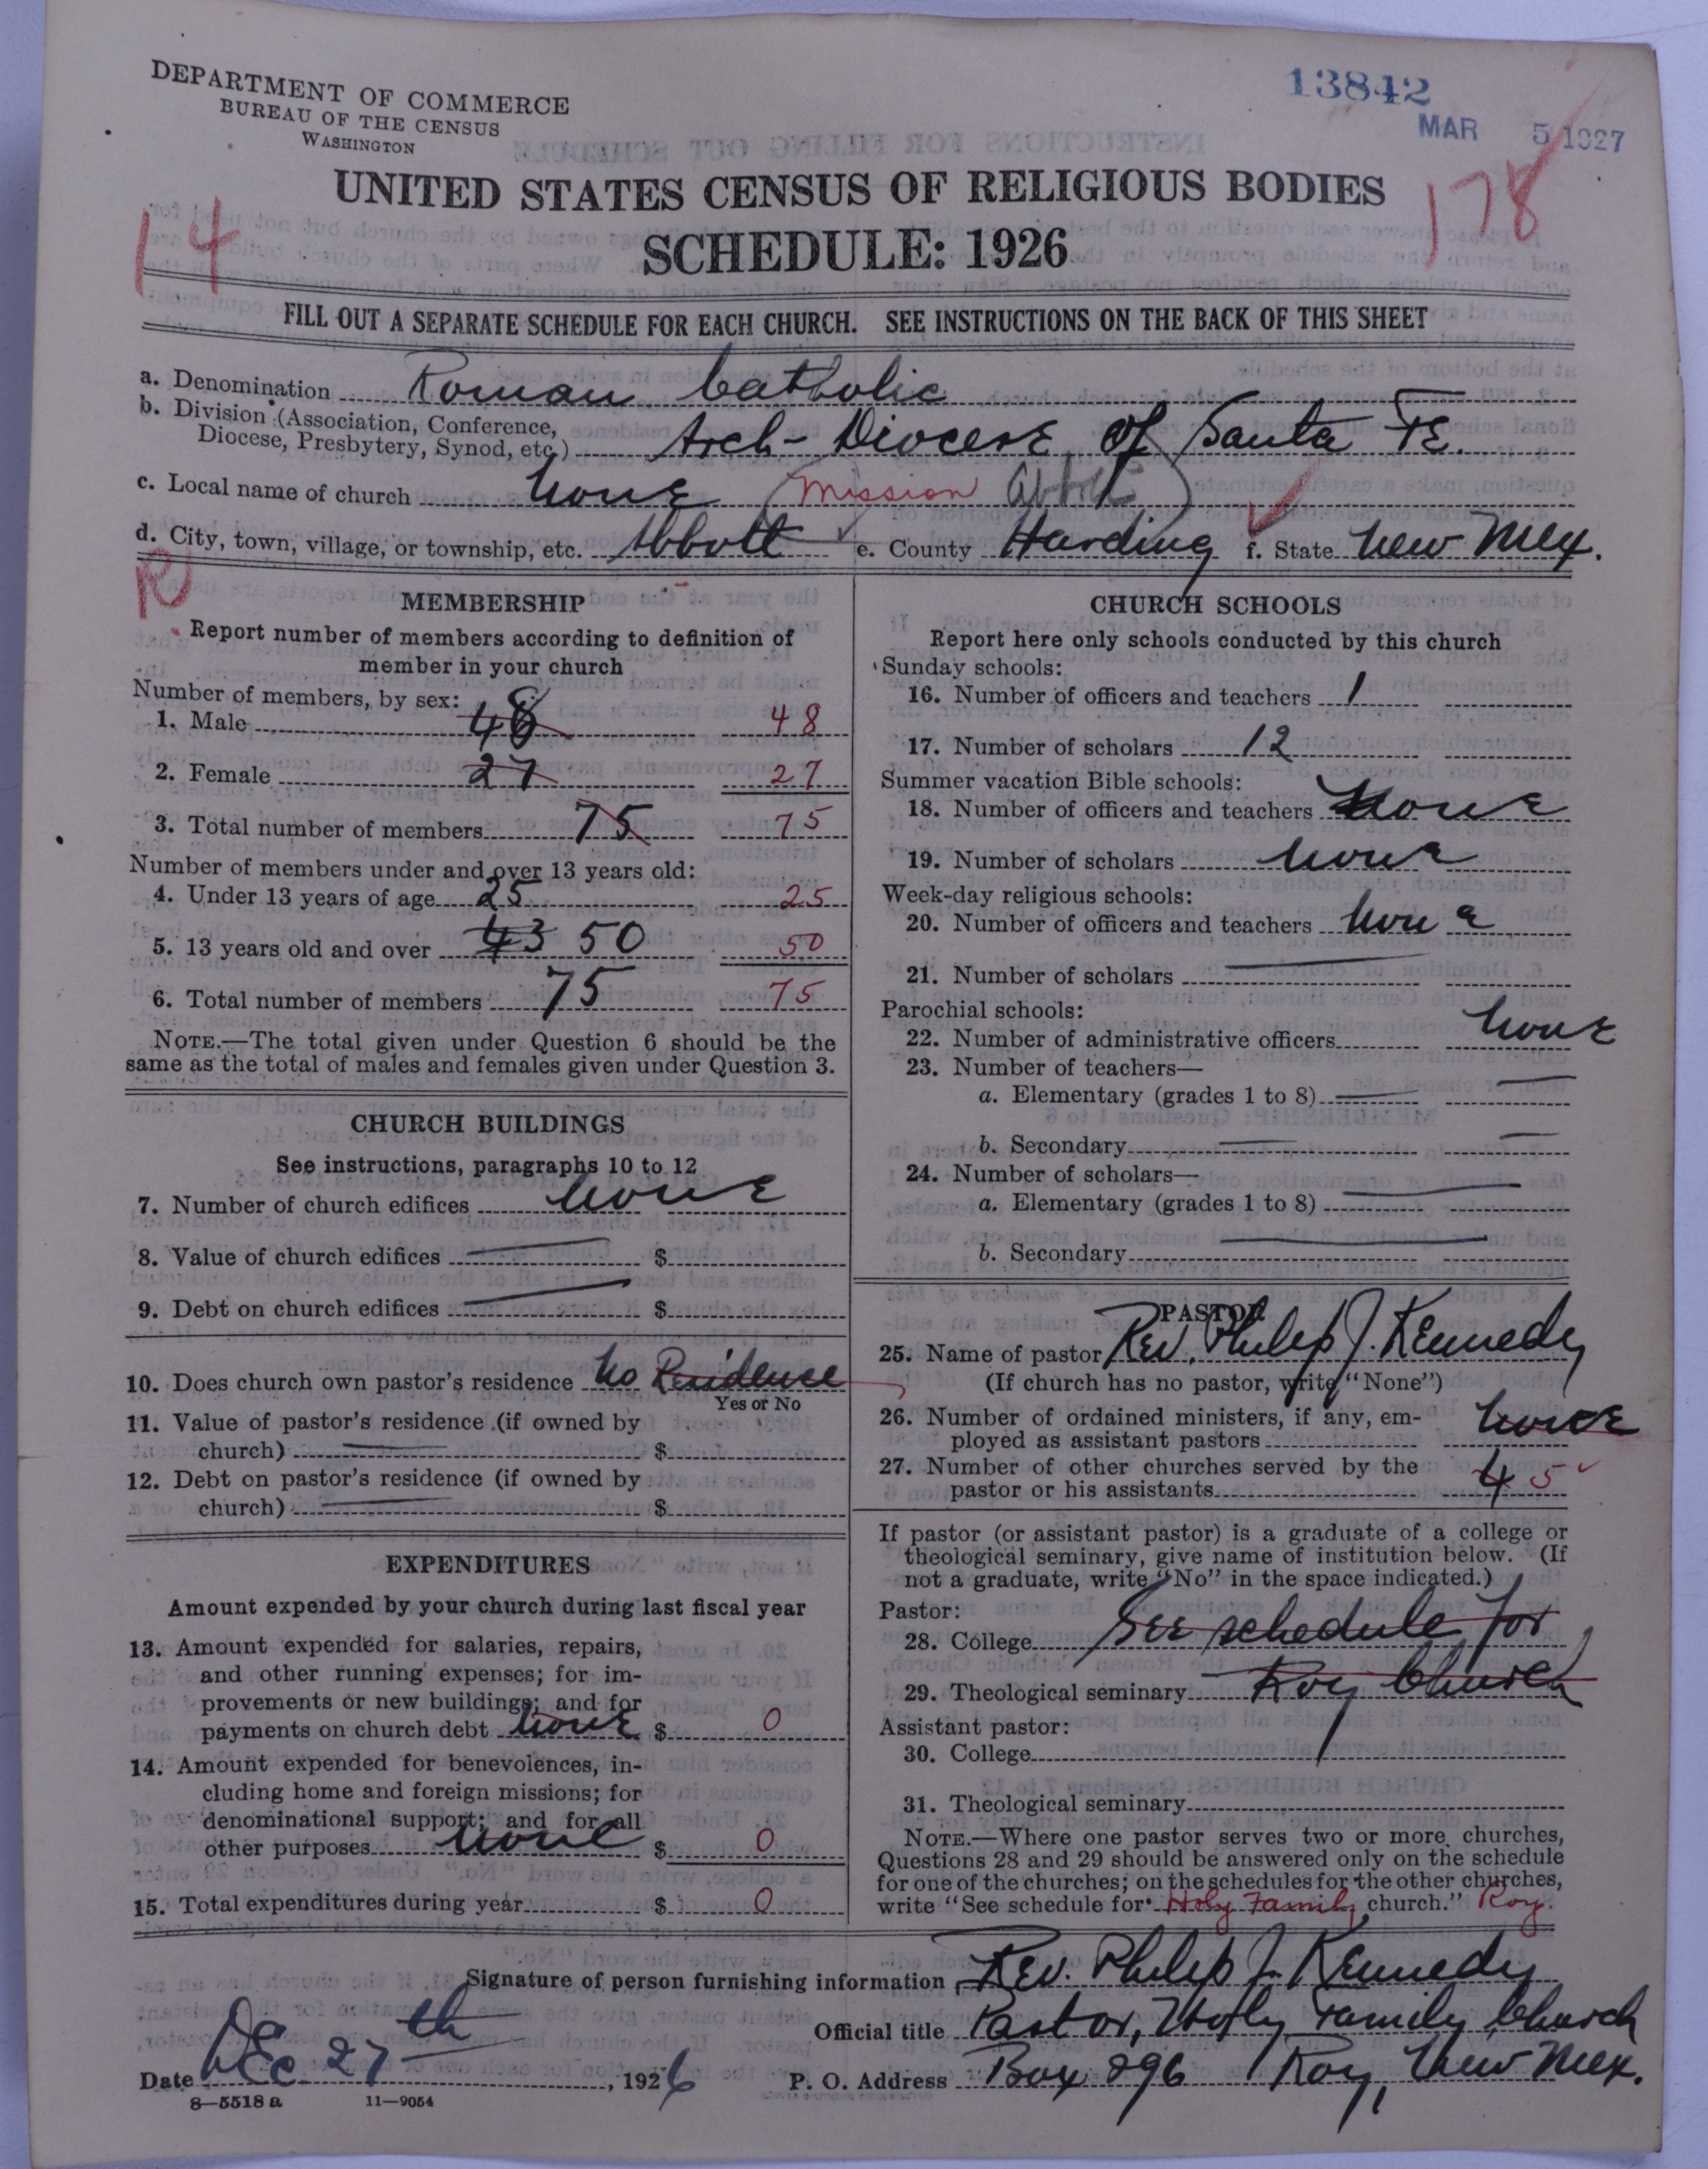 DEPARTMENT OF COMMERCE
BUREAU OF THE CENSUS
WASHINGTON
13842
MAR 5 1927
UNITED STATES CENSUS OF RELIGIOUS BODIES
SCHEDULE: 1926
14
178
FILL OUT A SEPARATE SCHEDULE FOR EACH CHURCH. SEE INSTRUCTIONS ON THE BACK OF THIS SHEET
a. Denomination Roman Catholic
b. Division (Association, Conference, Diocese, Presbytery, Synod, etc.) Arch-Diocese of Santa FE.
c. Local name of church None (Mission Abbott)
d. City, town, village, or township, etc. Abbott e. County Harding f. State New Mex.
R
MEMBERSHIP
Report number of members according to definition of
member in your church
Number of members, by sex:
1. Male 48 48
2. Female 27 27
3. Total number of members 75 75
Number of members under and over 13 years old:
4. Under 13 years of age 25 25
5. 13 years old and over 43 50 50
6. Total number of members 75 75
NOTE.—The total given under Question 6 should be the
same as the total of males and females given under Question 3.
CHURCH BUILDINGS
See instructions, paragraphs 10 to 12
7. Number of church edifices None
8. Value of church edifices $
9. Debt on church edifices $
10. Does church own pastor's residence No Residence
Yes or No
11. Value of pastor's residence (if owned by
church) $
12. Debt on pastor's residence (if owned by
church) $
EXPENDITURES
Amount expended by your church during last fiscal year
13. Amount expended for salaries, repairs,
and other running expenses; for im-
provements or new buildings; and for
payments on church debt None $ 0
14. Amount expended for benevolences, in-
cluding home and foreign missions; for
denominational support; and for all
other purposes None $ 0
15. Total expenditures during year $ 0
CHURCH SCHOOLS
Report here only schools conducted by this church
Sunday schools:
16. Number of officers and teachers 1
17. Number of scholars 12
Summer vacation Bible schools:
18. Number of officers and teachers None
19. Number of scholars None
Week-day religious schools:
20. Number of officers and teachers None
21. Number of scholars
Parochial schools:
22. Number of administrative officers None
23. Number of teachers—
a. Elementary (grades 1 to 8)
b. Secondary
24. Number of scholars—
a. Elementary (grades 1 to 8)
b. Secondary
PASTOR
25. Name of pastor Rev. Philip J. Kennedy
(If church has no pastor, write "None")
26. Number of ordained ministers, if any, em-
ployed as assistant pastors None
27. Number of other churches served by the
pastor or his assistants 4 5
If pastor (or assistant pastor) is a graduate of a college or
theological seminary, give name of institution below. (If
not a graduate, write "No" in the space indicated.)
Pastor:
28. College See schedule for
29. Theological seminary Roy Church
Assistant pastor:
30. College
31. Theological seminary
NOTE.—Where one pastor serves two or more churches,
Questions 28 and 29 should be answered only on the schedule
for one of the churches; on the schedules for the other churches,
write "See schedule for Holy Family church." Roy.
Signature of person furnishing information Rev. Philip J. Kennedy
Official title Pastor, Holy Family Church
Date Dec 27th, 1926 P. O. Address Box 296 Roy, New Mex.
8—5518 a 11—9054